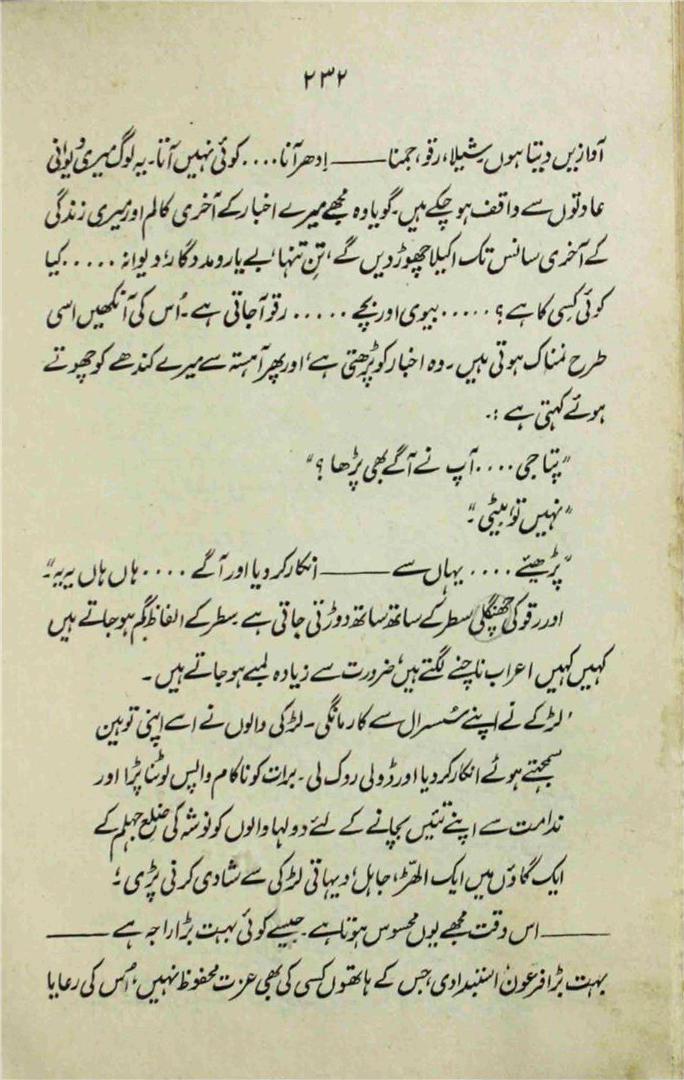 ۲۳۲
آوازیں دیتا ہوں شیلا، رقو، جمنا ——— اِدھر آنا .... کوئی نہیں آتا۔ یہ لوگ میری دُیوانی
عادتوں سے واقف ہو چکے ہیں۔ گویا وہ مجھے میرے اخبار کے آخری کالم اور میری زندگی
کے آخری سانس تک اکیلا چھوڑ دیں گے، تنِ تنہا، بے یار و مددگار، دیوانہ ..... کیا
کوئی کسی کا ہے؟ ..... بیوی اور بچے ..... رقو آجاتی ہے۔ اُس کی آنکھیں اسی
طرح نمناک ہوتی ہیں۔ وہ اخبار کو پڑھتی ہے، اور پھر آہستہ سے میرے کندھے کو چھوتے
ہوئے کہتی ہے :۔
"پتا جی .... آپ نے آگے بھی پڑھا؟"
"نہیں تو بیٹی۔"
"پڑھیئے .... یہاں سے ——— انکار کر دیا اور آگے .... ہاں ہاں یہ یہ۔"
اور رقو کی چھنگلی سطر کے ساتھ ساتھ دوڑتی جاتی ہے۔ سطر کے الفاظ گم ہو جاتے ہیں
کہیں کہیں اعراب ناچنے لگتے ہیں، ضرورت سے زیادہ لمبے ہو جاتے ہیں۔
'لڑکے نے اپنے سُسرال سے کار مانگی۔ لڑکی والوں نے اسے اپنی توہین
سمجھتے ہوئے انکار کر دیا اور ڈولی روک لی۔ برات کو ناکام واپس لوٹنا پڑا اور
ندامت سے اپنے تئیں بچانے کے لئے دولہا والوں کو نوشہ کی ضلع جہلم کے
ایک گاؤں میں ایک الھڑ، جاہل، دیہاتی لڑکی سے شادی کرنی پڑی۔'
——— اس وقت مجھے یوں محسوس ہوتا ہے۔ جیسے کوئی بہت بڑا راجہ ہے ———
بہت بڑا فرعون، استبدادی، جس کے ہاتھوں کسی کی بھی عزت محفوظ نہیں، جس کی رعایا